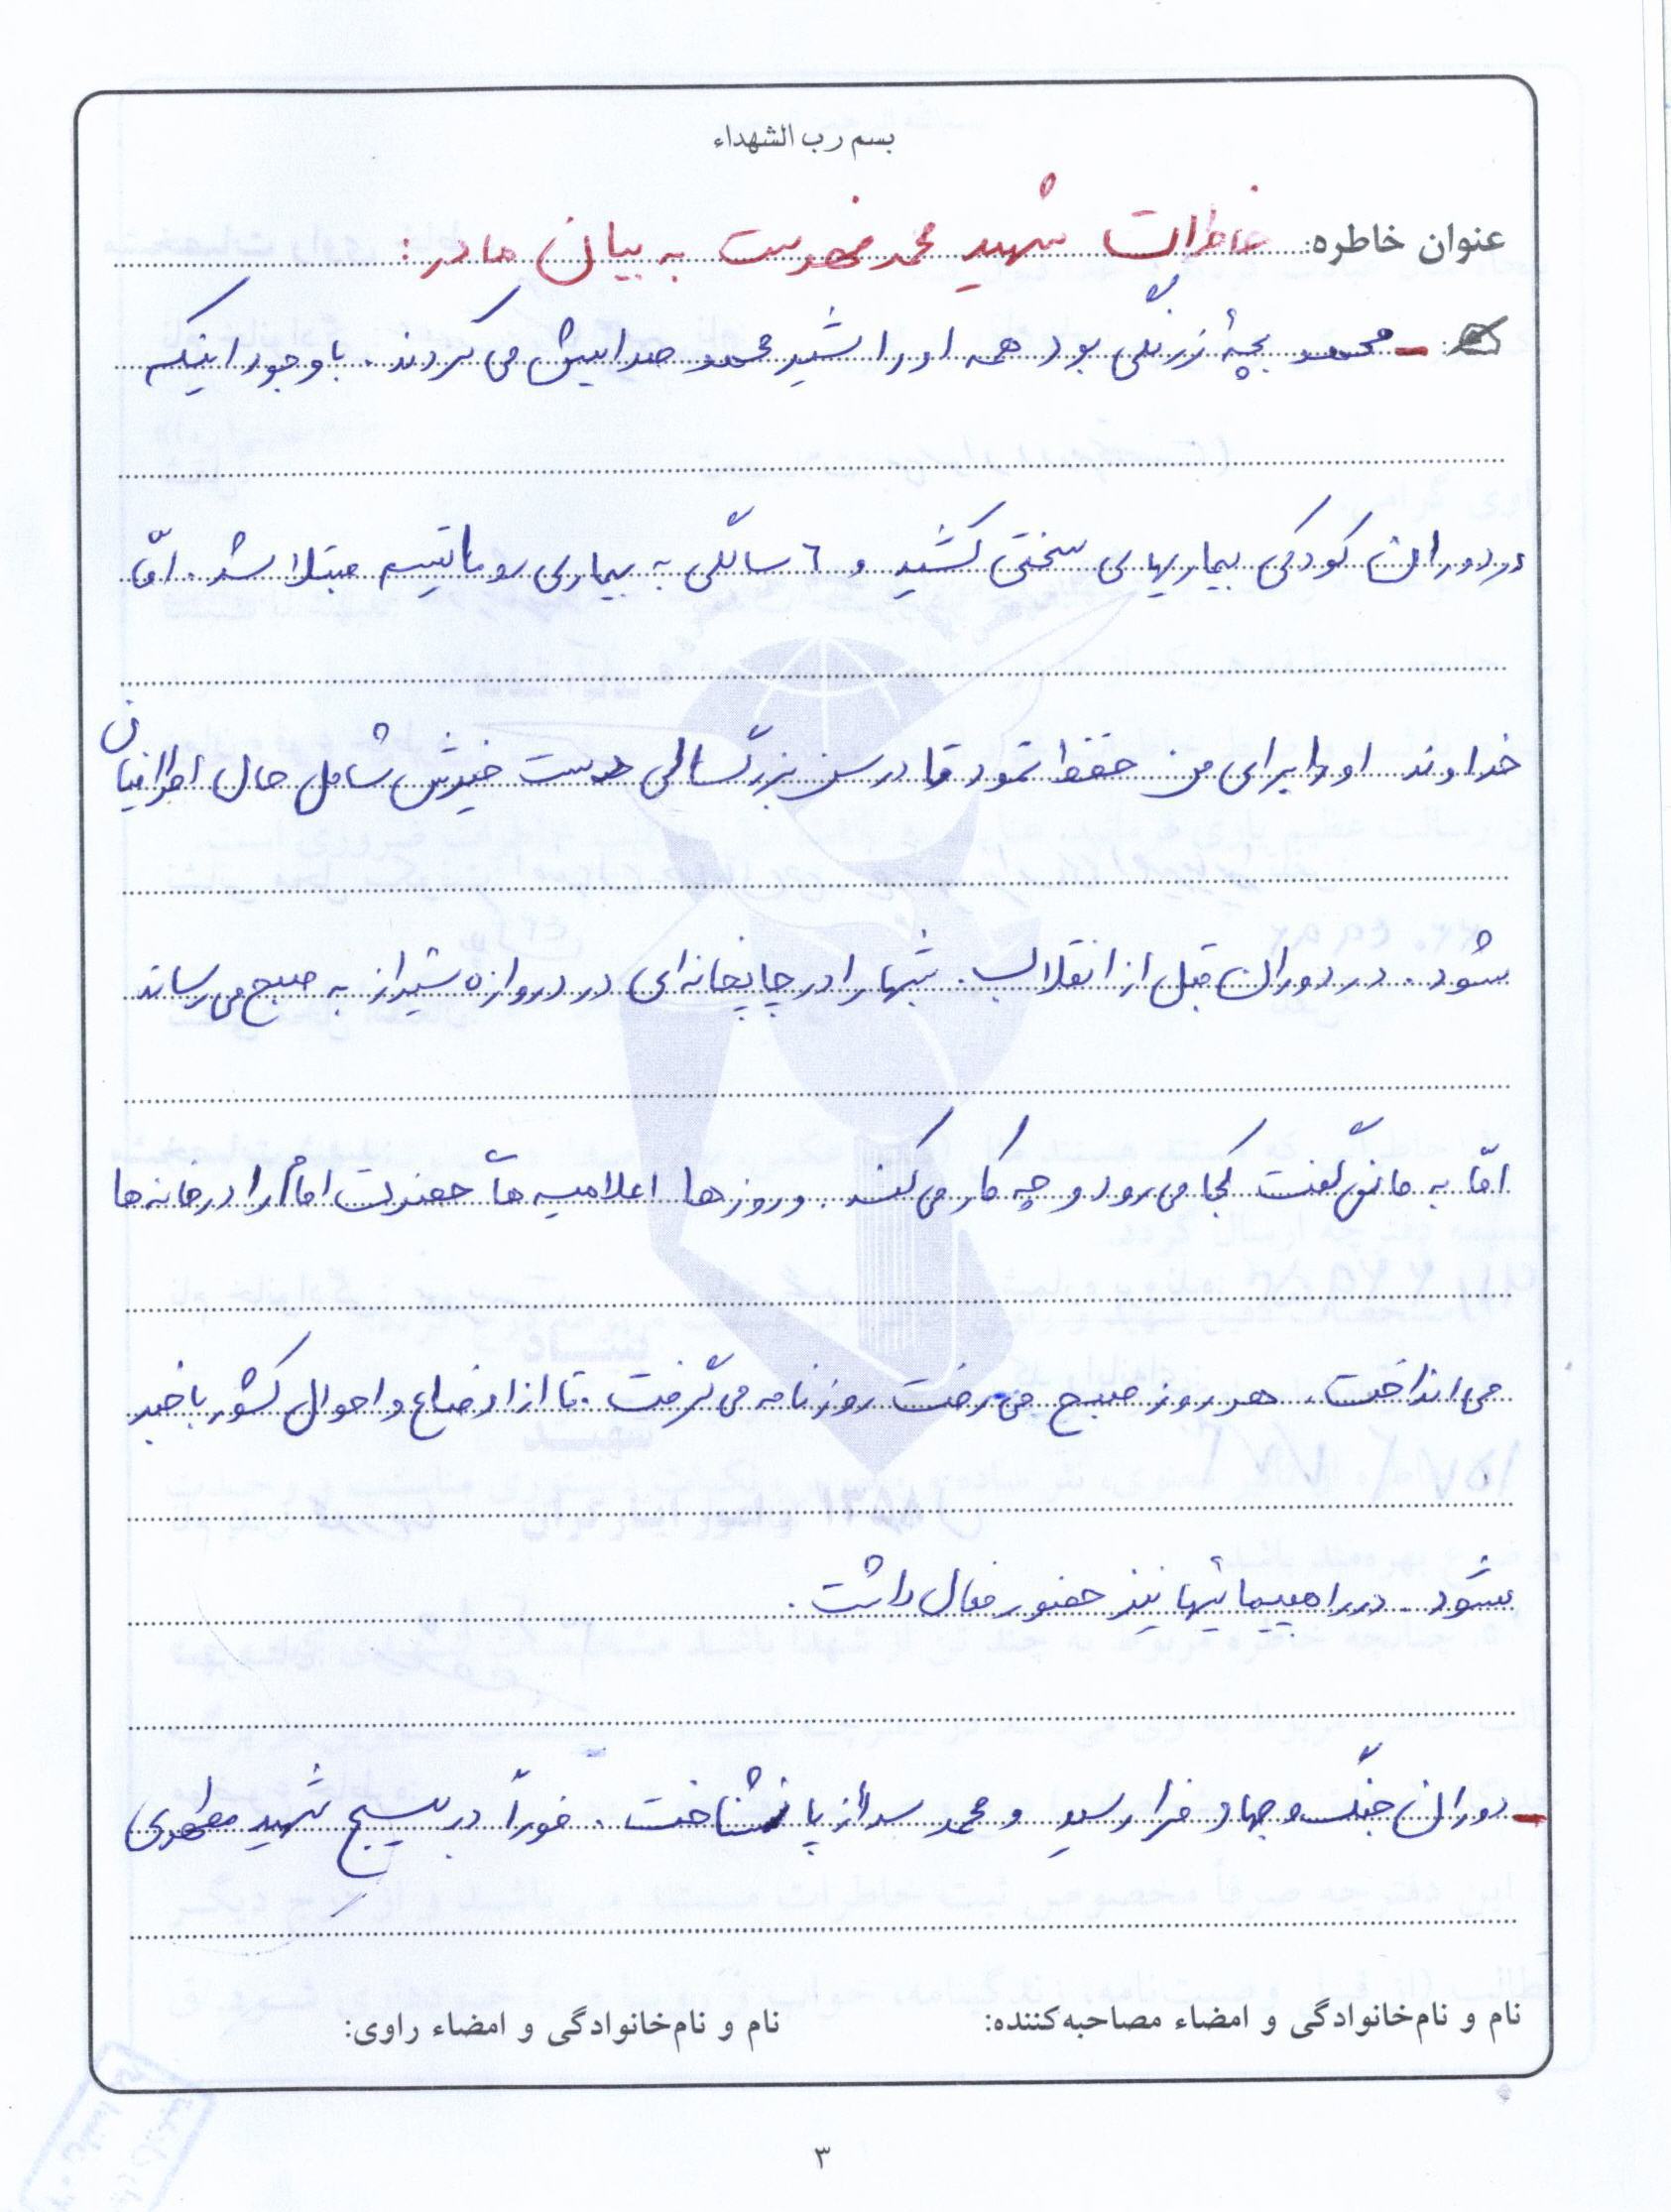 بسم رب الشهداء
عنوان خاطره: خاطرات شهید محمد فهرست به بیان مادر:
- محمد بچهٔ زرنگی بود همه او را شید محمد صدایش می کردند. با وجود اینکه
در دوران کودکی بیماریهای سختی کشید و ٦ سالگی به بیماری روماتیسم مبتلا شد. امّا
خداوند او را برای من حفظ نمود تا در سن بزرگسالی دست خیرش شامل حال اطرافیان
شود. در دوران قبل از انقلاب. شبها را در چاپخانه ای در دروازه شیراز به صبح می رساند
امّا به ما نمی گفت کجا می رود و چه کار می کند. و روزها اعلامیه های حضرت امام را در خانه ها
می انداخت. هر روز صبح می رفت روزنامه می گرفت. تا از اوضاع و احوال کشور با خبر
شود. در راهپیمائیها نیز حضور فعال داشت.
- دوران جنگ و جهاد فرا رسید و محمد سر از پا نشناخت. فوراً در بسیج شهید مطهری
نام و نام‌خانوادگی و امضاء مصاحبه‌کننده: نام و نام‌خانوادگی و امضاء راوی:
۳